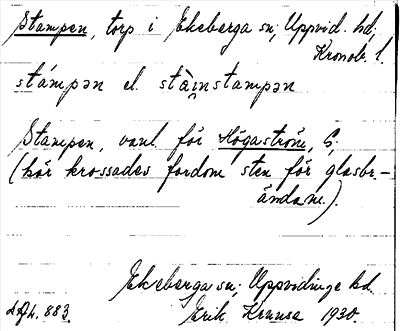 Stampen, torp i Ekeberga sn; Uppvid. hd;
Kronob. l.
stámpən el. stàinstampən
Stampen, vanl för Högaström, S,
(här krossades fordom sten för glasbr.-
ändam.).
Ekeberga sn; Uppvidinge hd.
883. Erik 1930.